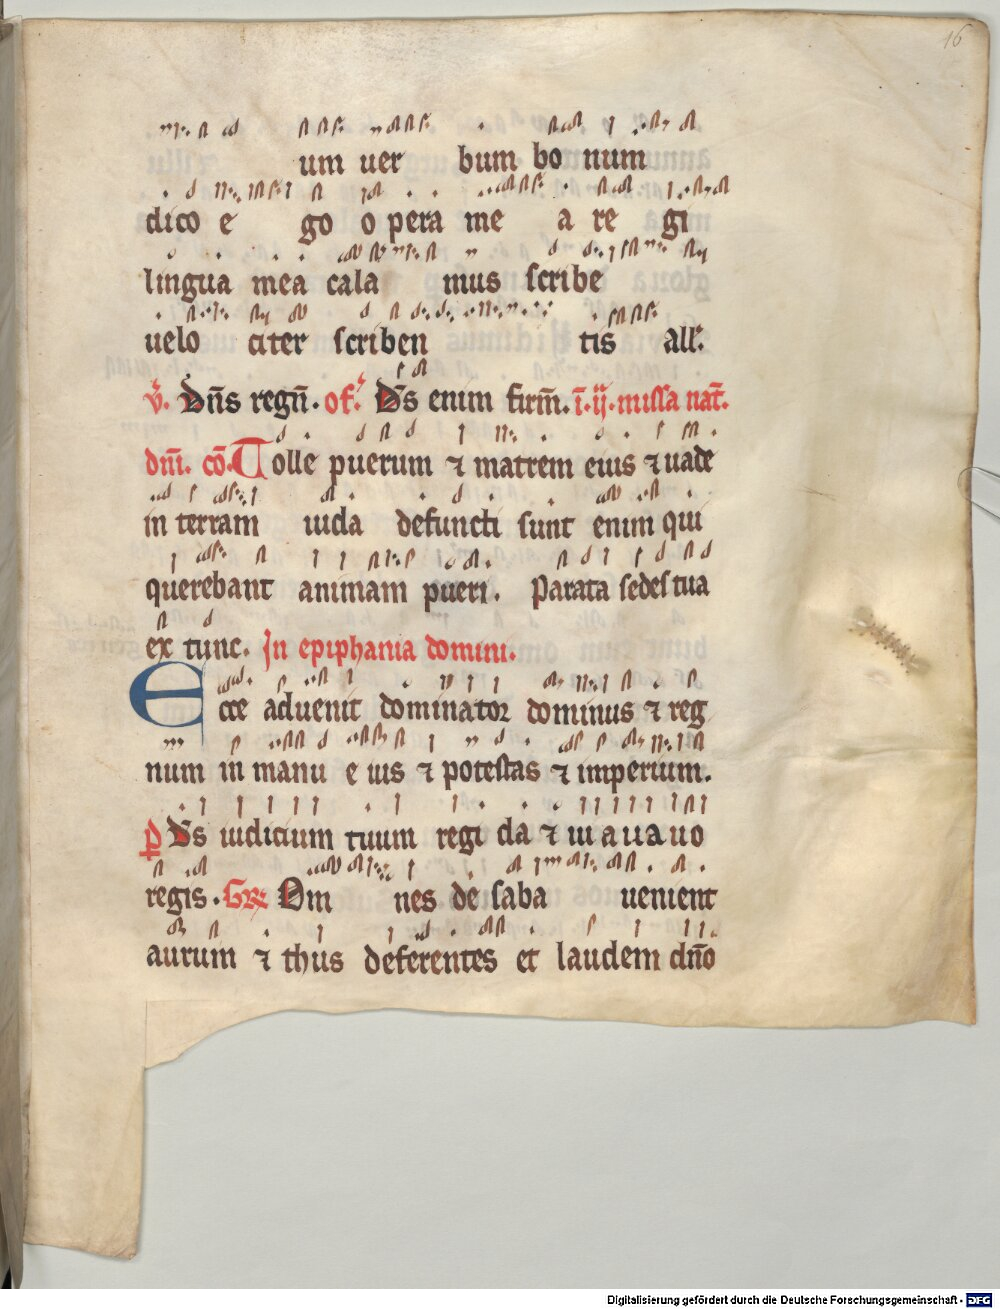 16
um uer bum bo num
dico e go o pera me a re gi
lingua mea cala mus scribe
uelo citer scriben tis all'.
v̄. Dn̄s regn̄. of. D̄s enim firm̄. ī. ij. missa nat̄.
dn̄i. cō. Tolle puerum ⁊ matrem eius ⁊ uade
in terram iuda defuncti sunt enim qui
querebant animam pueri. Parata sedes tua
ex tunc. In epiphania domini.
Ecce aduenit dominator dominus ⁊ reg
num in manu e ius ⁊ potestas ⁊ imperium.
p D̄s iudicium tuum regi da ⁊ iu a u a u o
regis. Gr̄. Om nes de saba uenient
aurum ⁊ thus deferentes et laudem dn̄o
Digitalisierung gefördert durch die Deutsche Forschungsgemeinschaft - DFG